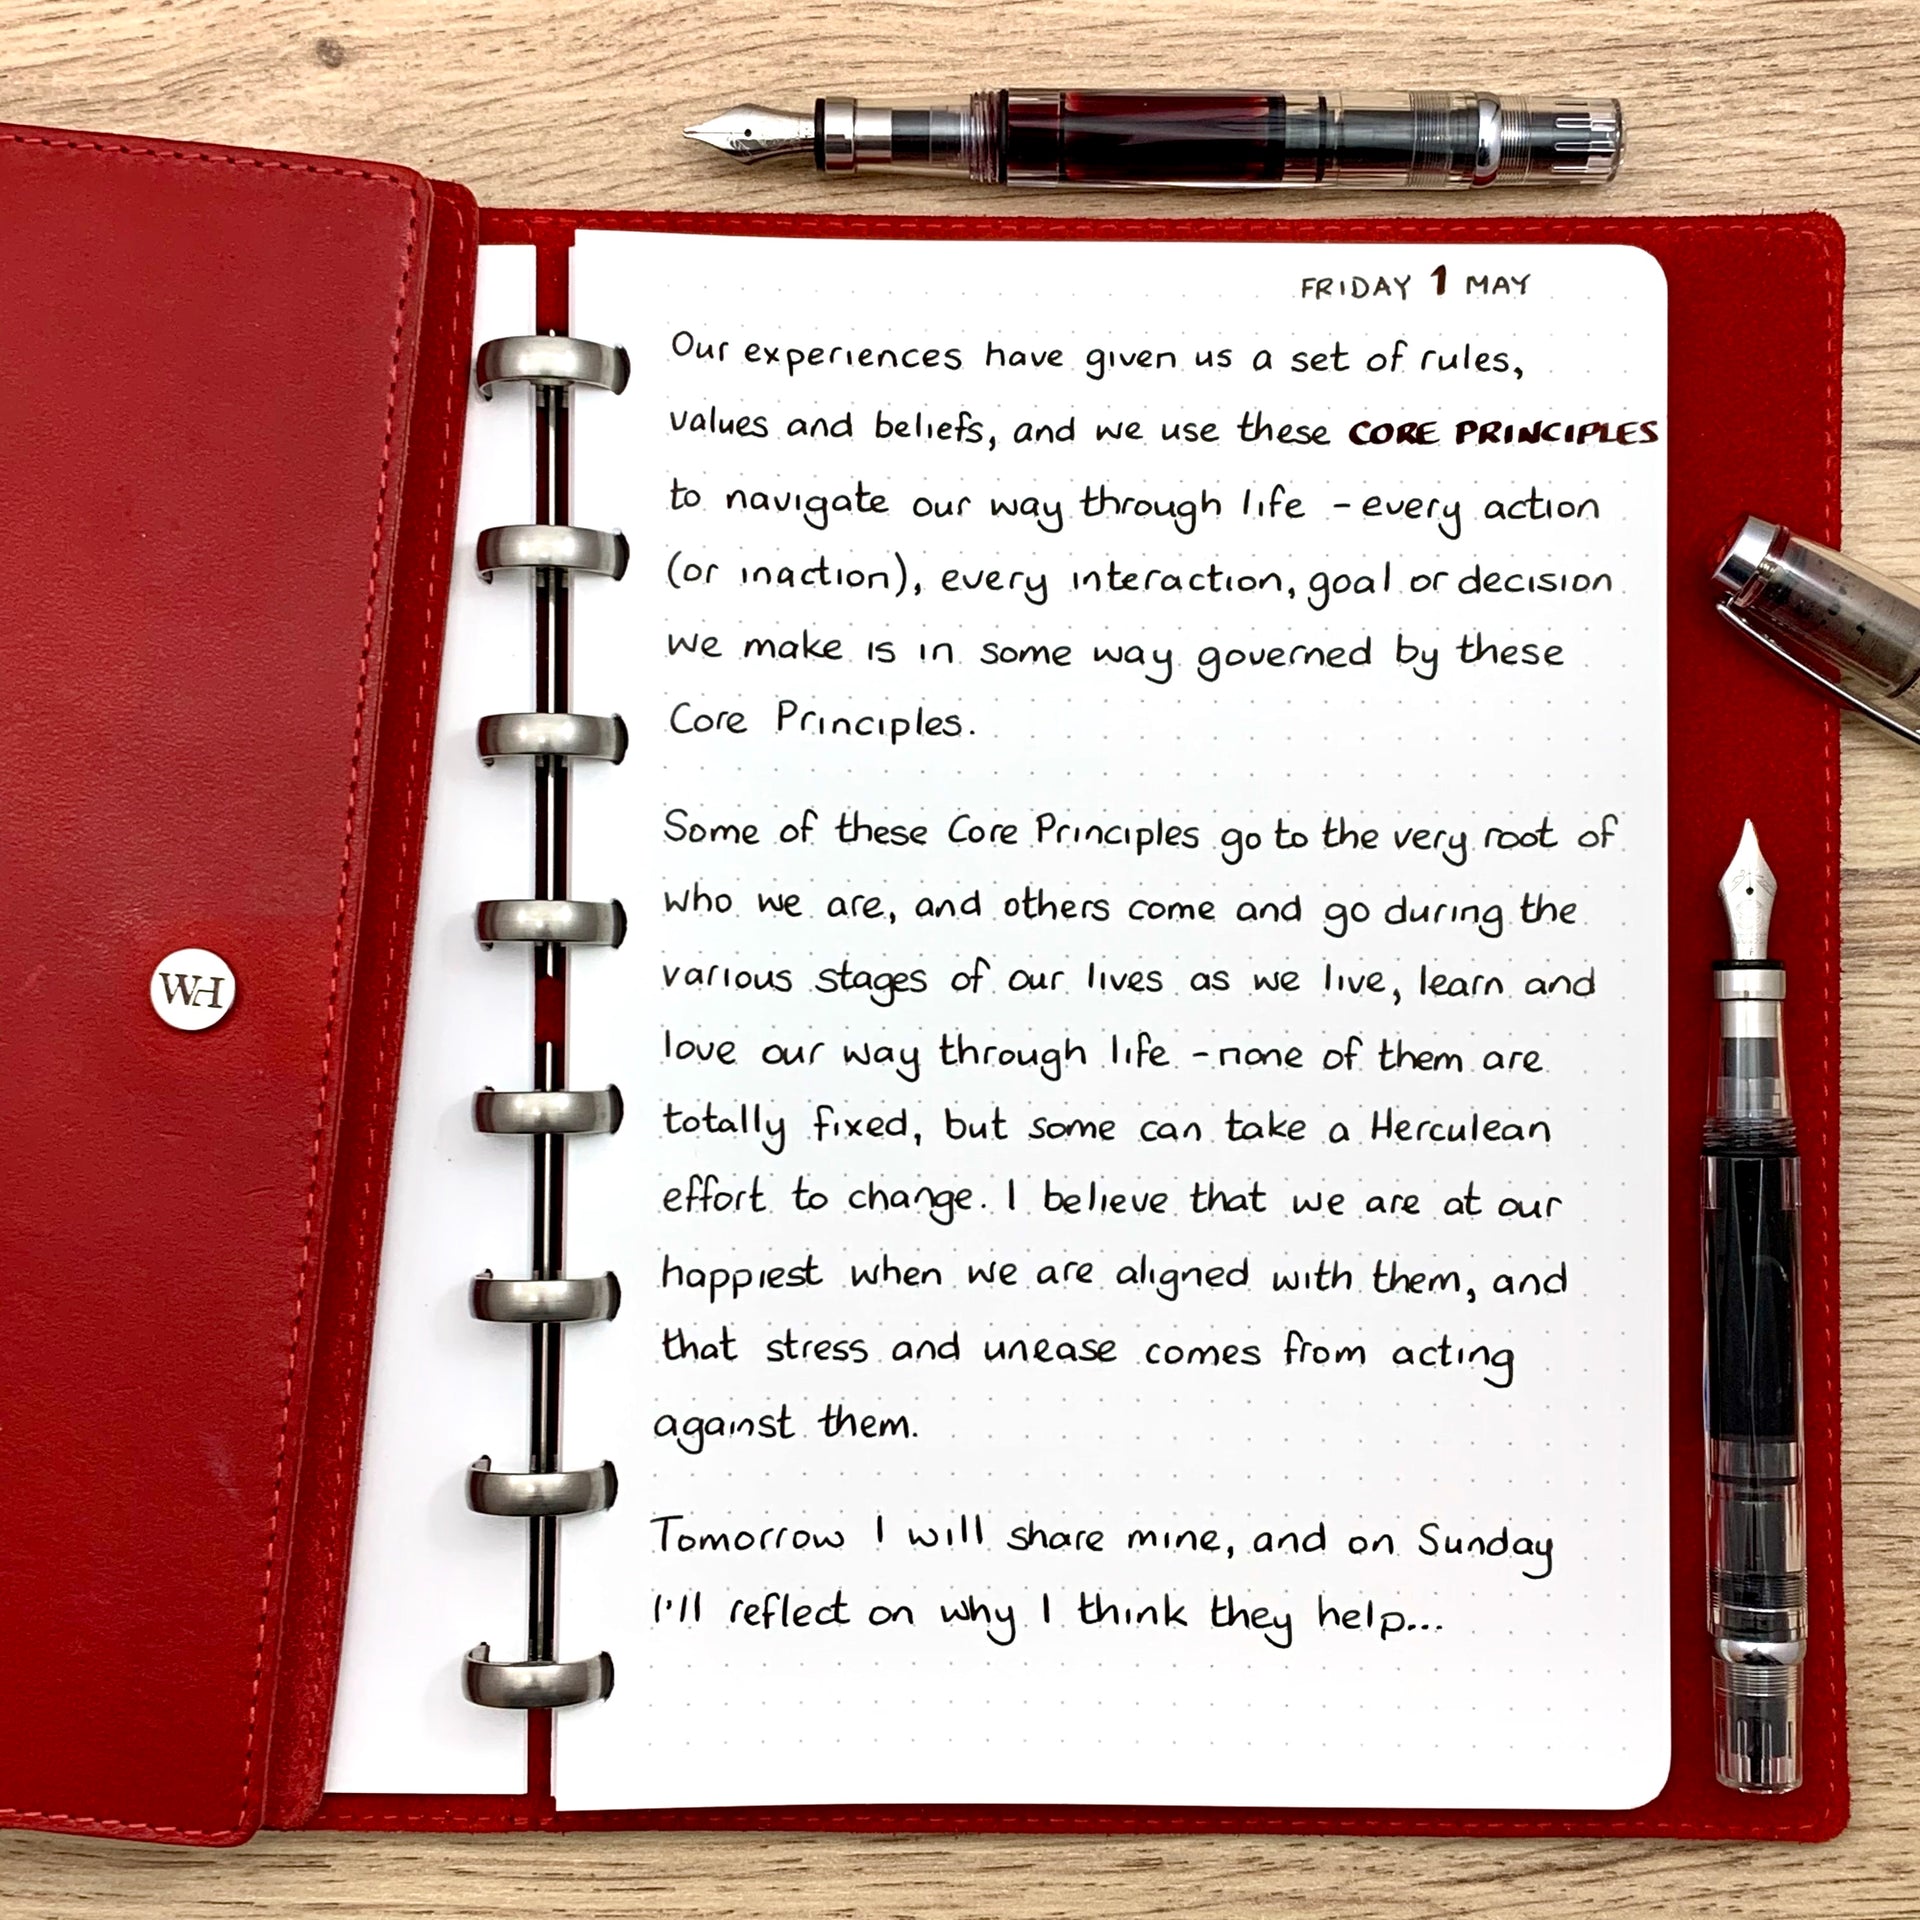 FRIDAY 1 MAY
Our experiences have given us a set of rules,
values and beliefs, and we use these CORE PRINCIPLES
to navigate our way through life - every action
(or inaction), every interaction, goal or decision
we make is in some way governed by these
Core Principles.
Some of these Core Principles go to the very root of
who we are, and others come and go during the
various stages of our lives as we live, learn and
love our way through life - none of them are
totally fixed, but some can take a Herculean
effort to change. I believe that we are at our
happiest when we are aligned with them, and
that stress and unease comes from acting
against them.
Tomorrow I will share mine, and on Sunday
I'll reflect on why I think they help...
WH